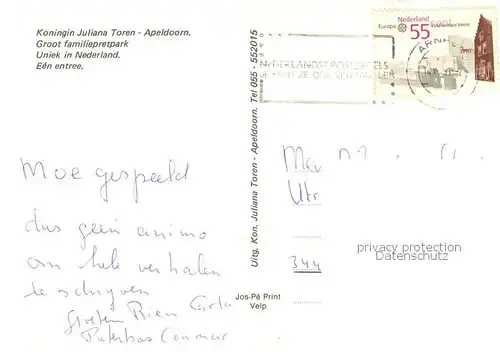 Koningin Juliana Toren - Apeldoorn.
Groot familiepretpark
Uniek in Nederland.
Eén entree.
Uitg. Kon. Juliana Toren - Apeldoorn. Tel 055 - 552015
Nederland
Europa 55
Moe gespeeld
dus geen animo
om hele verhalen
te schrijven
Groeten Rien Carla
Utr
344
privacy protection
Datenschutz
Jos-Pé Print
Velp